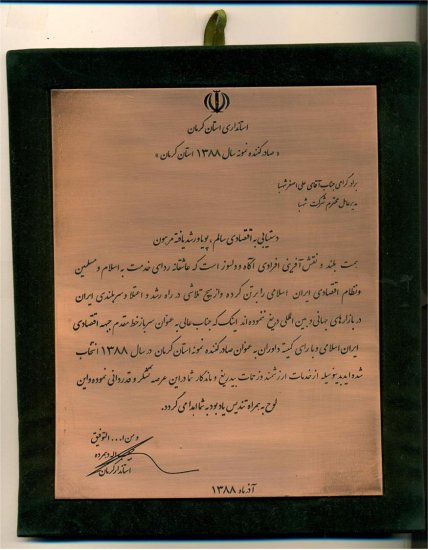 استانداری استان کرمان
« صادرکننده نمونه سال ۱۳۸۸ استان کرمان »
برادر گرامی جناب آقای علی اصغر شهبا
مدیرعامل محترم شرکت شهبا
دستیابی به اقتصادی سالم ، پویا و رشد یافته مرهون
همت بلند و نقش آفرینی افرادی آگاه و دلسوز است که عاشقانه ردای خدمت به اسلام و مسلمین
و نظام اقتصادی ایران اسلامی را بر تن کرده و از هیچ تلاشی در راه رشد و اعتلا و سربلندی ایران
در بازارهای جهانی و بین المللی دریغ ننموده اند اینک که جناب عالی به عنوان سرباز خط مقدم جبهه اقتصادی
ایران اسلامی و با رای کمیته داوران به عنوان صادرکننده نمونه استان کرمان در سال ۱۳۸۸ انتخاب
شده اید بدینوسیله از خدمات ارزشمند و زحمات بیدریغ و ماندگار شما در این عرصه تشکر و قدردانی نموده و این
لوح به همراه تندیس یادبود به شما اهدا می گردد.
و من ا... التوفیق
دهمرده
استاندار کرمان
آذرماه ۱۳۸۸